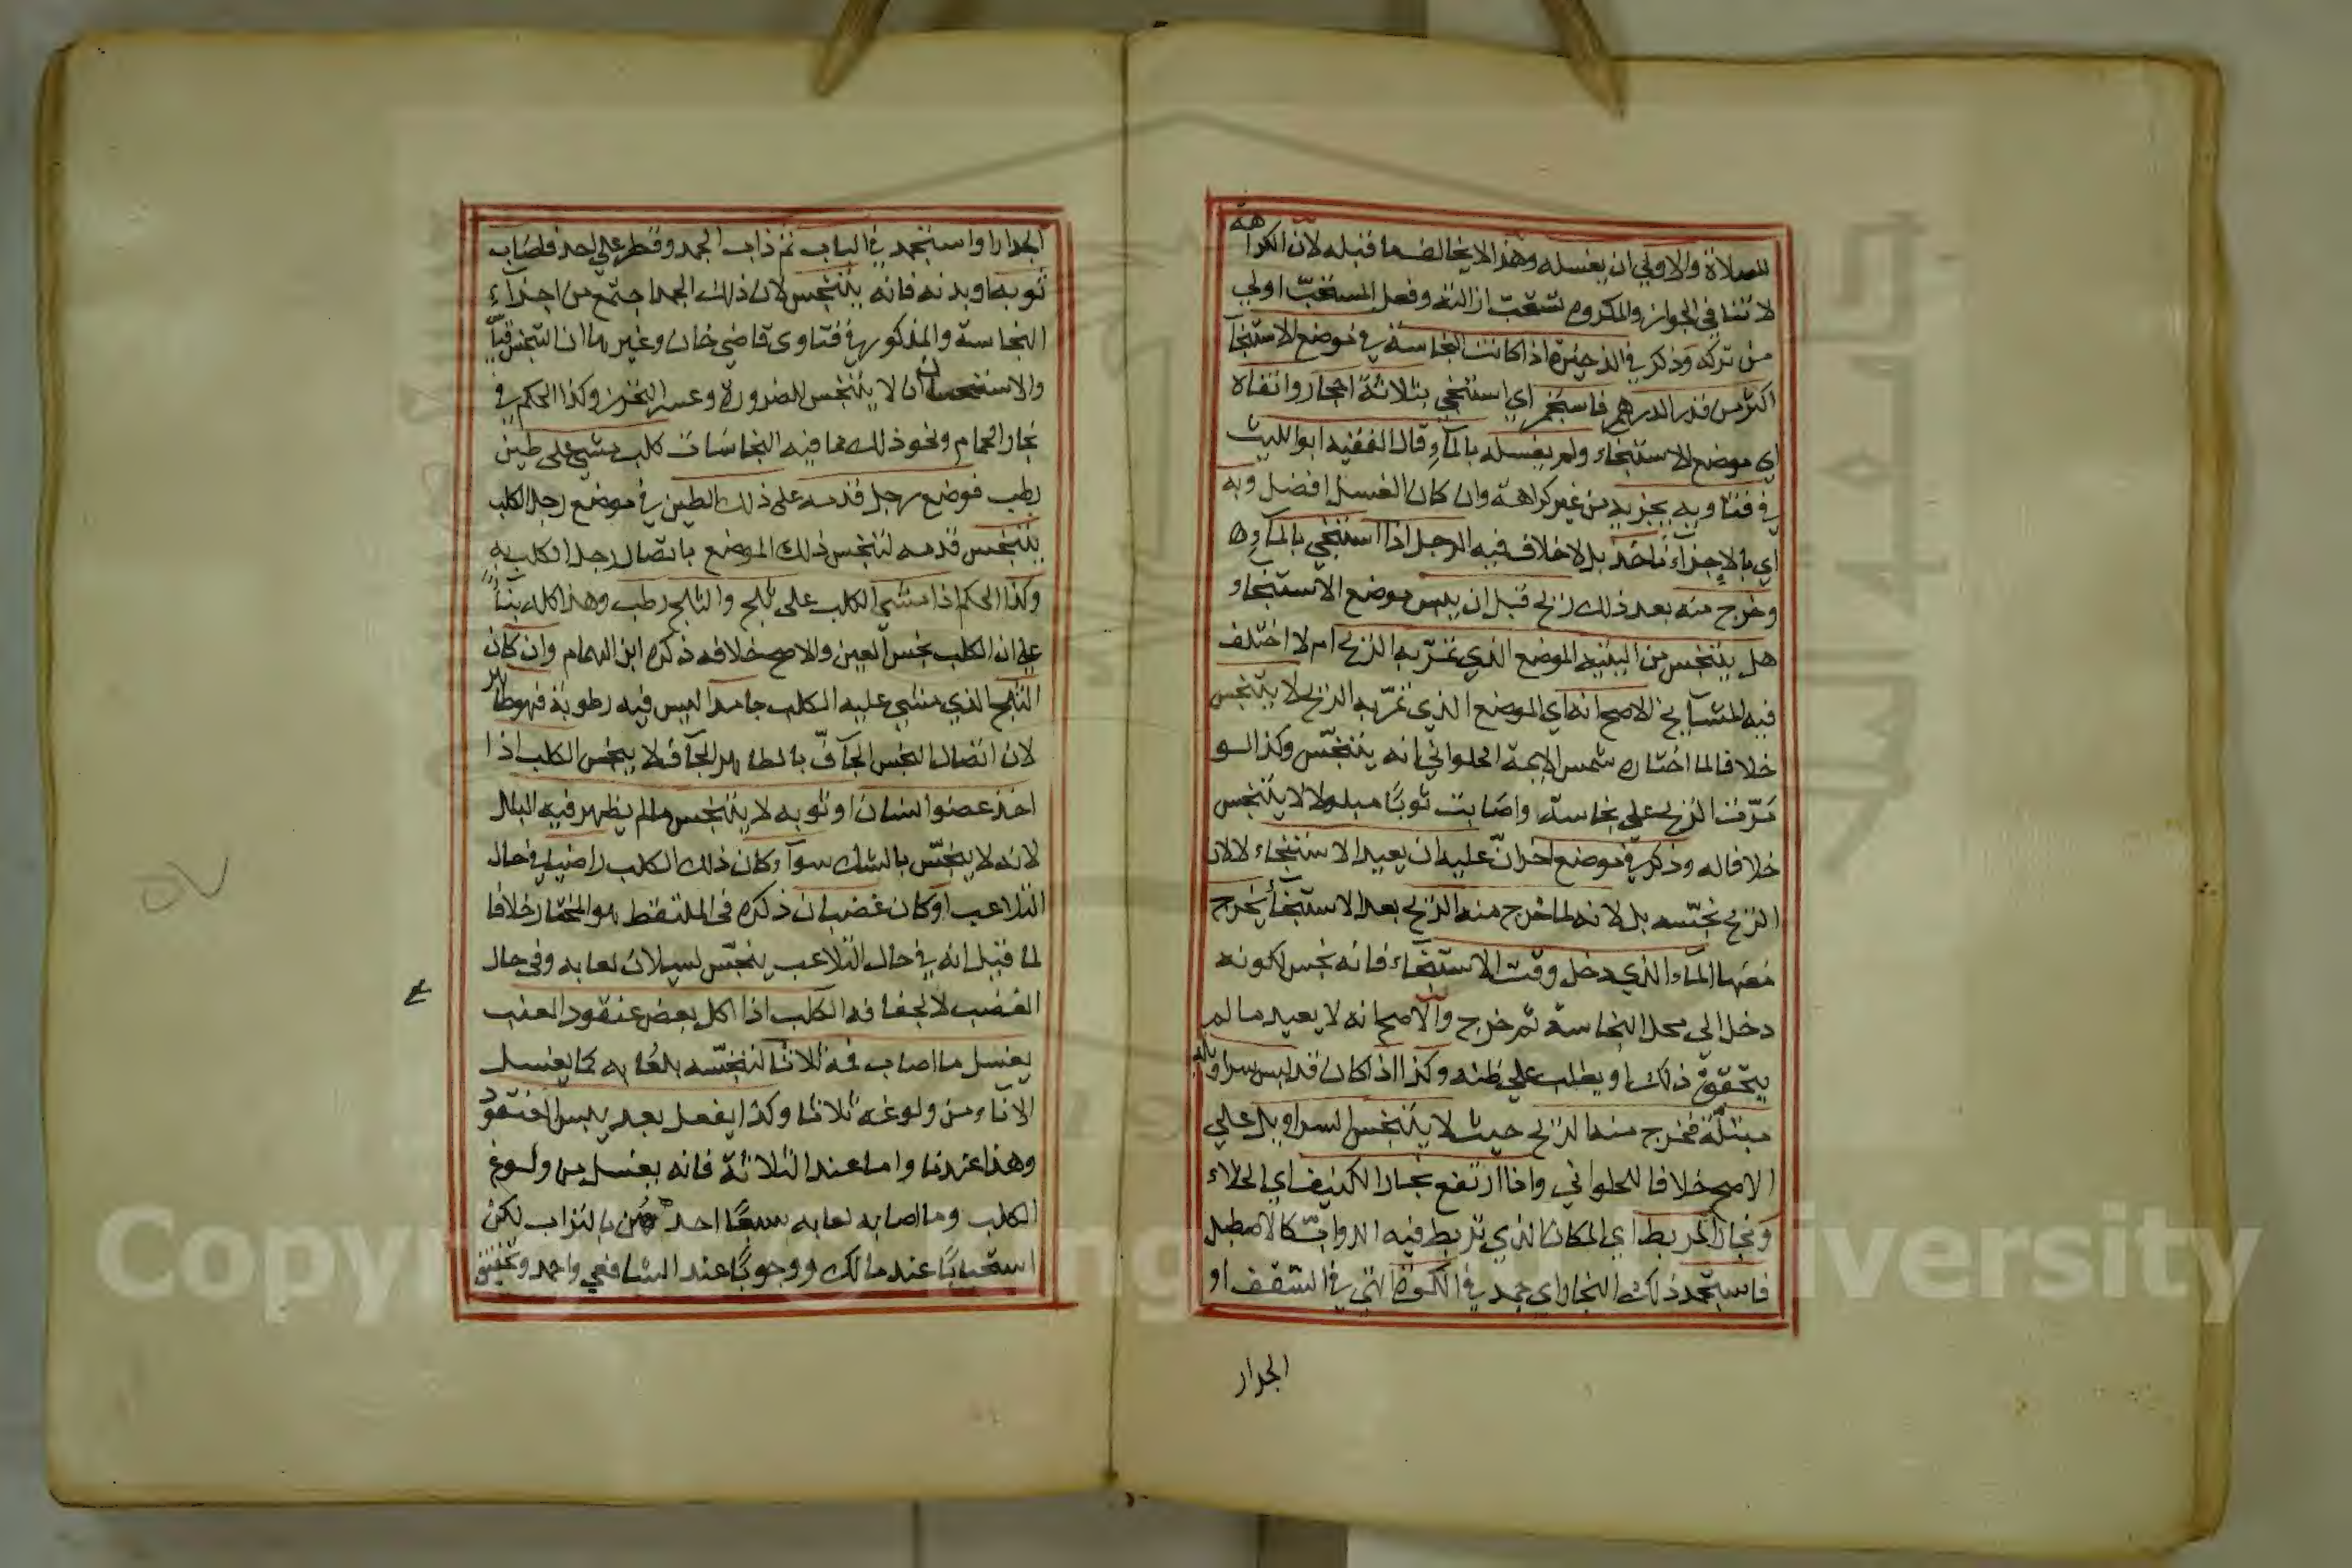 للصلاة والاولي ان يغسله وهذا لا يخالف ما قبله لان الكراهة
لا تنافي الجواز والمكروه تستحب ازالته وفعل المستحب اولي
من تركه وذكر في الذخيرة اذا كانت النجاسة في موضع الاستنجا
اكثر من قدر الدرهم فاستجمر اي استنجي بثلاثة احجار وانقاه
اي موضع الاستنجاء ولم يغسله بالمآء وقال الفقيه ابوا الليث
في فتاويه يجزيه من غير كراهة وان كان الغسل افضل وبه
اي بالاجزآء ناخذ بلا خلاف فيه الرجل اذا استنجي بالمآء
وخرج منه بعد ذلك ريح قبل ان ييبس موضع الاستنجا و
هل يتنجس من اليتيه الموضع الذي تمرّ به الريح ام لا اختلف
فيه المشايخ الاصح انه اي الموضع الذي تمرّ به الريح لا يتنجس
خلافا لما اختاره شمس الايمة الحلواني انه يتنجّس وكذا لو
مرّت الريح علي نجاسة واصابت ثوبًا مبلولا لا يتنجس
خلافا له وذكر في موضع اخر انّ عليه ان يعيد الاستنجاء لا لان
الريح نجّسه بل لانه لما خرج منه الريح بعد الاستنجآء يخرج
معها المآء الذي دخل وقت الاستنجآء فانه نجس لكونه
دخل الي محل النجاسة ثم خرج والاصح انه لا يعيد ما لم
يتحقق ذلك او يغلب علي ظنه وكذا اذا كان قد لبس سراويله
مبتلّة فخرج منه الريح حيث لا يتنجس السراويل علي
الاصح خلافا للحلواني واذا ارتفع بخار الكنيف اي الخلاء
وبخار المربط اي المكان الذي تربط فيه الدوابّ كالاصطبل
فاستجمد ذلك البخار اي جمد في الكوة التي في السقف او
الجدار
الجدار او استنجمد في الباب ثم ذاب الجمد وقطر علي احد فاصاب
ثوبه او بدنه فانه يتنجس لان ذلك الجمد اجتمع من اجزآء
النجاسة والمذكور في فتاوى قاضي خان وغيرها ان التنجس قياس
والاستحسان ان لا يتنجس للضرورة وعسر التحرز وكذا الحكم في
بخار الحمام ونحو ذلك مما فيه النجاسات كلب مشي على طين
رطب فوضع رجل قدمه على ذلك الطين في موضع رجل الكلب
يتنجس قدمه لتنجس ذلك الموضع باتصال رجل الكلب به
وكذا الحكم اذا مشي الكلب على ثلج والثلج رطب وهذا كله بنآءً
علي ان الكلب نجس العين والاصح خلافه ذكره ابن الهمام وان كان
الثلج الذي مشي عليه الكلب جامدا ليس فيه رطوبة فهو طاهر
لان اتصال النجس الجآفّ بالطاهر الجآف لا ينجس الكلب اذا
اخذ عضو انسان او ثوبه لا يتنجس ما لم يظهر فيه البلل
لانه لا ينجّس بالشك سوآء كان ذلك الكلب راضيا في حال
التلاعب او كان غضبان ذكره في الملتقط هو المختار خلافا
لما قيل انه في حال التلاعب ينجّس لسيلان لعابه وفي حال
الغضب لا لجفافه الكلب اذا اكل بعض عنقود العنب
يغسل ما اصاب فمه ثلاثا لتنجّسه بلعابه كما يغسل
الانآء من ولوغه ثلاثا وكذا يفعل بعد يبس العنقود
وهذا عندنا واما عند الثلاثة فانه يغسل من ولوغ
الكلب وما اصابه لعابه سبعًا احداهن بالتراب لكن
استحبابًا عند مالك ووجوبًا عند الشافعي واحمد